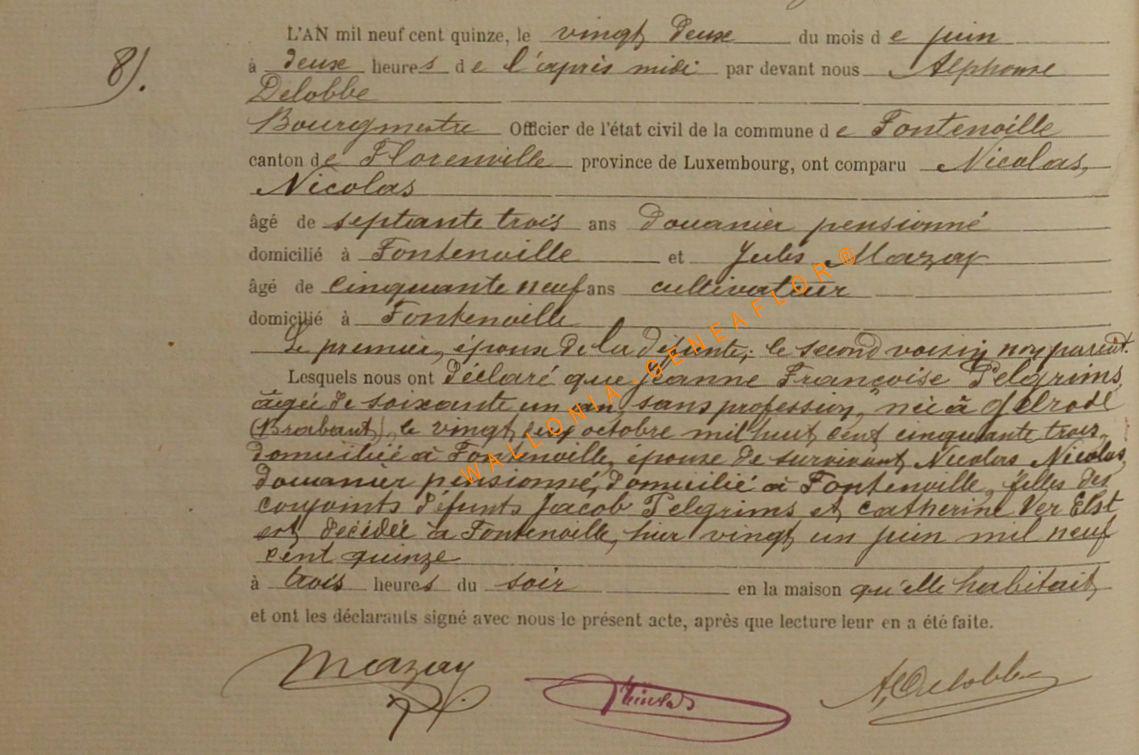 8).
L'AN mil neuf cent quinze, le vingt deux du mois d e juin
à deux heures d e l'après midi par devant nous Alphonse
Delobbe
Bourgmestre Officier de l'état civil de la commune d e Fontenoille
canton d e Florenville province de Luxembourg, ont comparu Nicolas,
Nicolas
âgé de septante trois ans Douanier pensionné
domicilié à Fontenoille et Jules Mazay
âgé de cinquante neuf ans cultivateur
domicilié à Fontenoille
Le premier, époux de la défunte, le second voisin non parent.
Lesquels nous ont déclaré que Jeanne Françoise Pelgrims,
âgée de soixante un an, sans profession, née à Gelrode
(Brabant), le vingt six octobre mil huit cent cinquante trois,
domiciliée à Fontenoille, épouse de survivant Nicolas Nicolas,
douanier pensionné, domicilié à Fontenoille, filles des
conjoints défunts Jacob Pelgrims et Catherine Ver Elst
est décédée à Fontenoille, hier vingt un juin mil neuf
cent quinze
à trois heures du soir en la maison qu'elle habitait
et ont les déclarants signé avec nous le présent acte, après que lecture leur en a été faite.
Mazay Nicolas A, Delobbe
WALLONIA GENEAFLOR ®